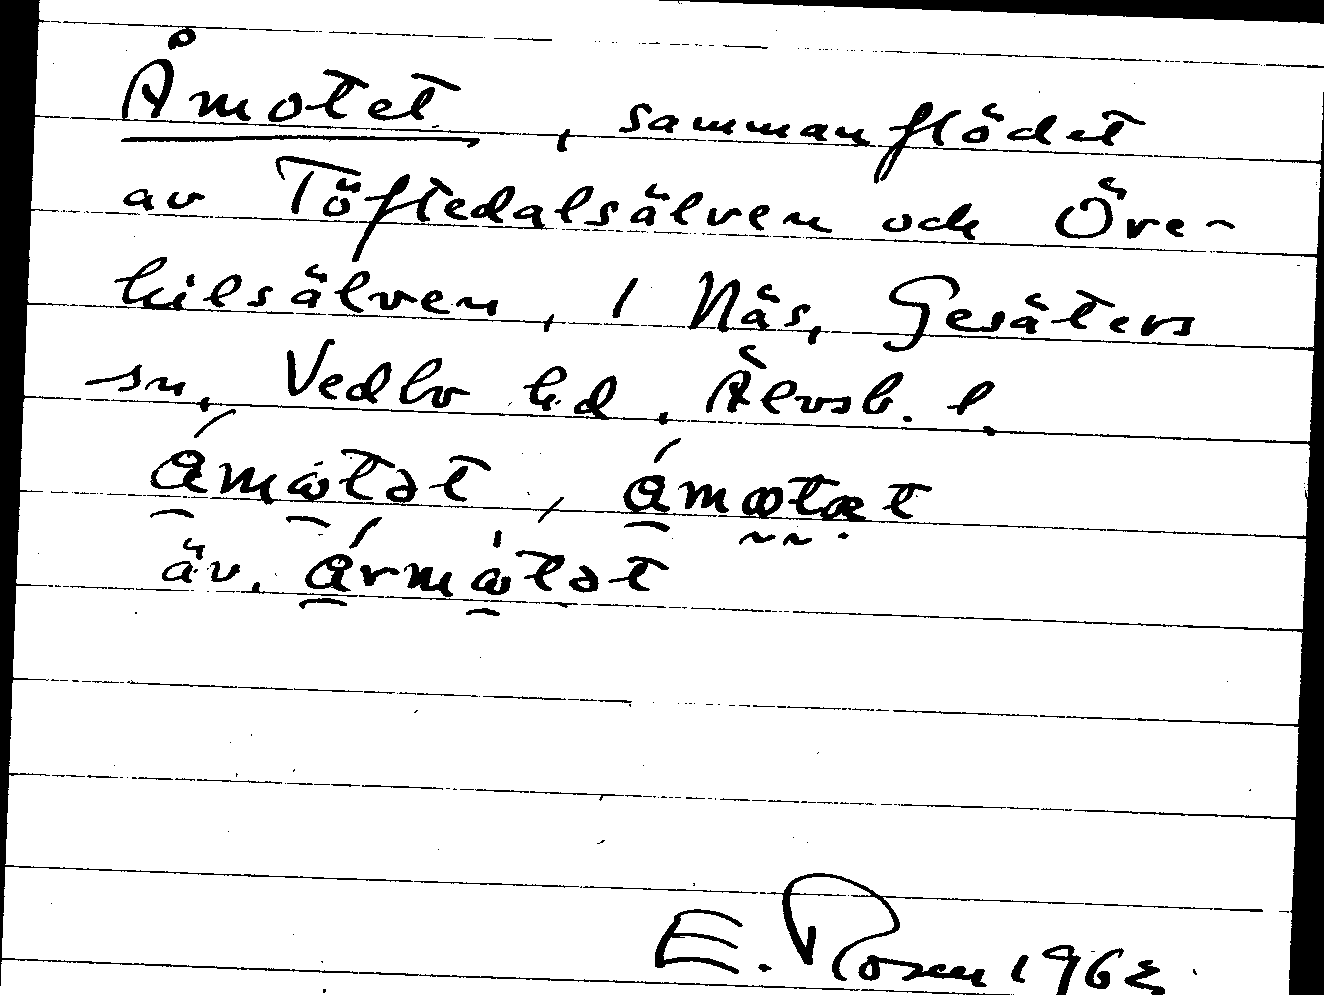 Åmotet, sammanflödet
av Töftedalsälven och Öre-
kilsälven, i Näs, Gesäters
sn, Vedbo hd, Älvsb. l.
åmωtət, åmωtæt
äv. årmωtət
E. Rosen 1962